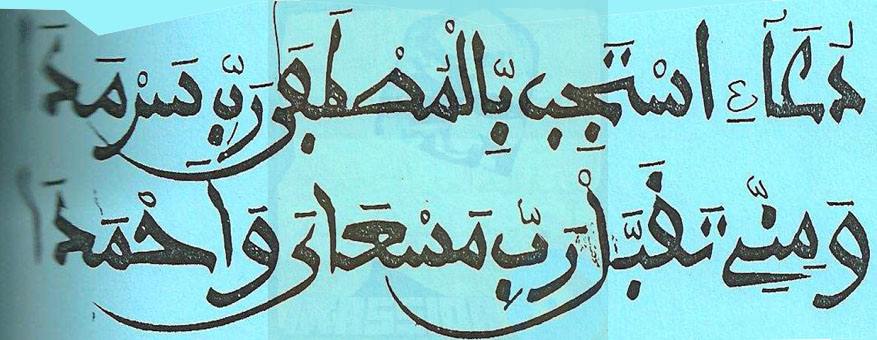 دُعَآءِ اسْتَجِب بِّالْمُصْطَفَى رَبِّ سَرْمَدَا
وَمِنِّي تَقَبَّلْ رَبِّ مَسْعَايَ وَاحْمَدَا